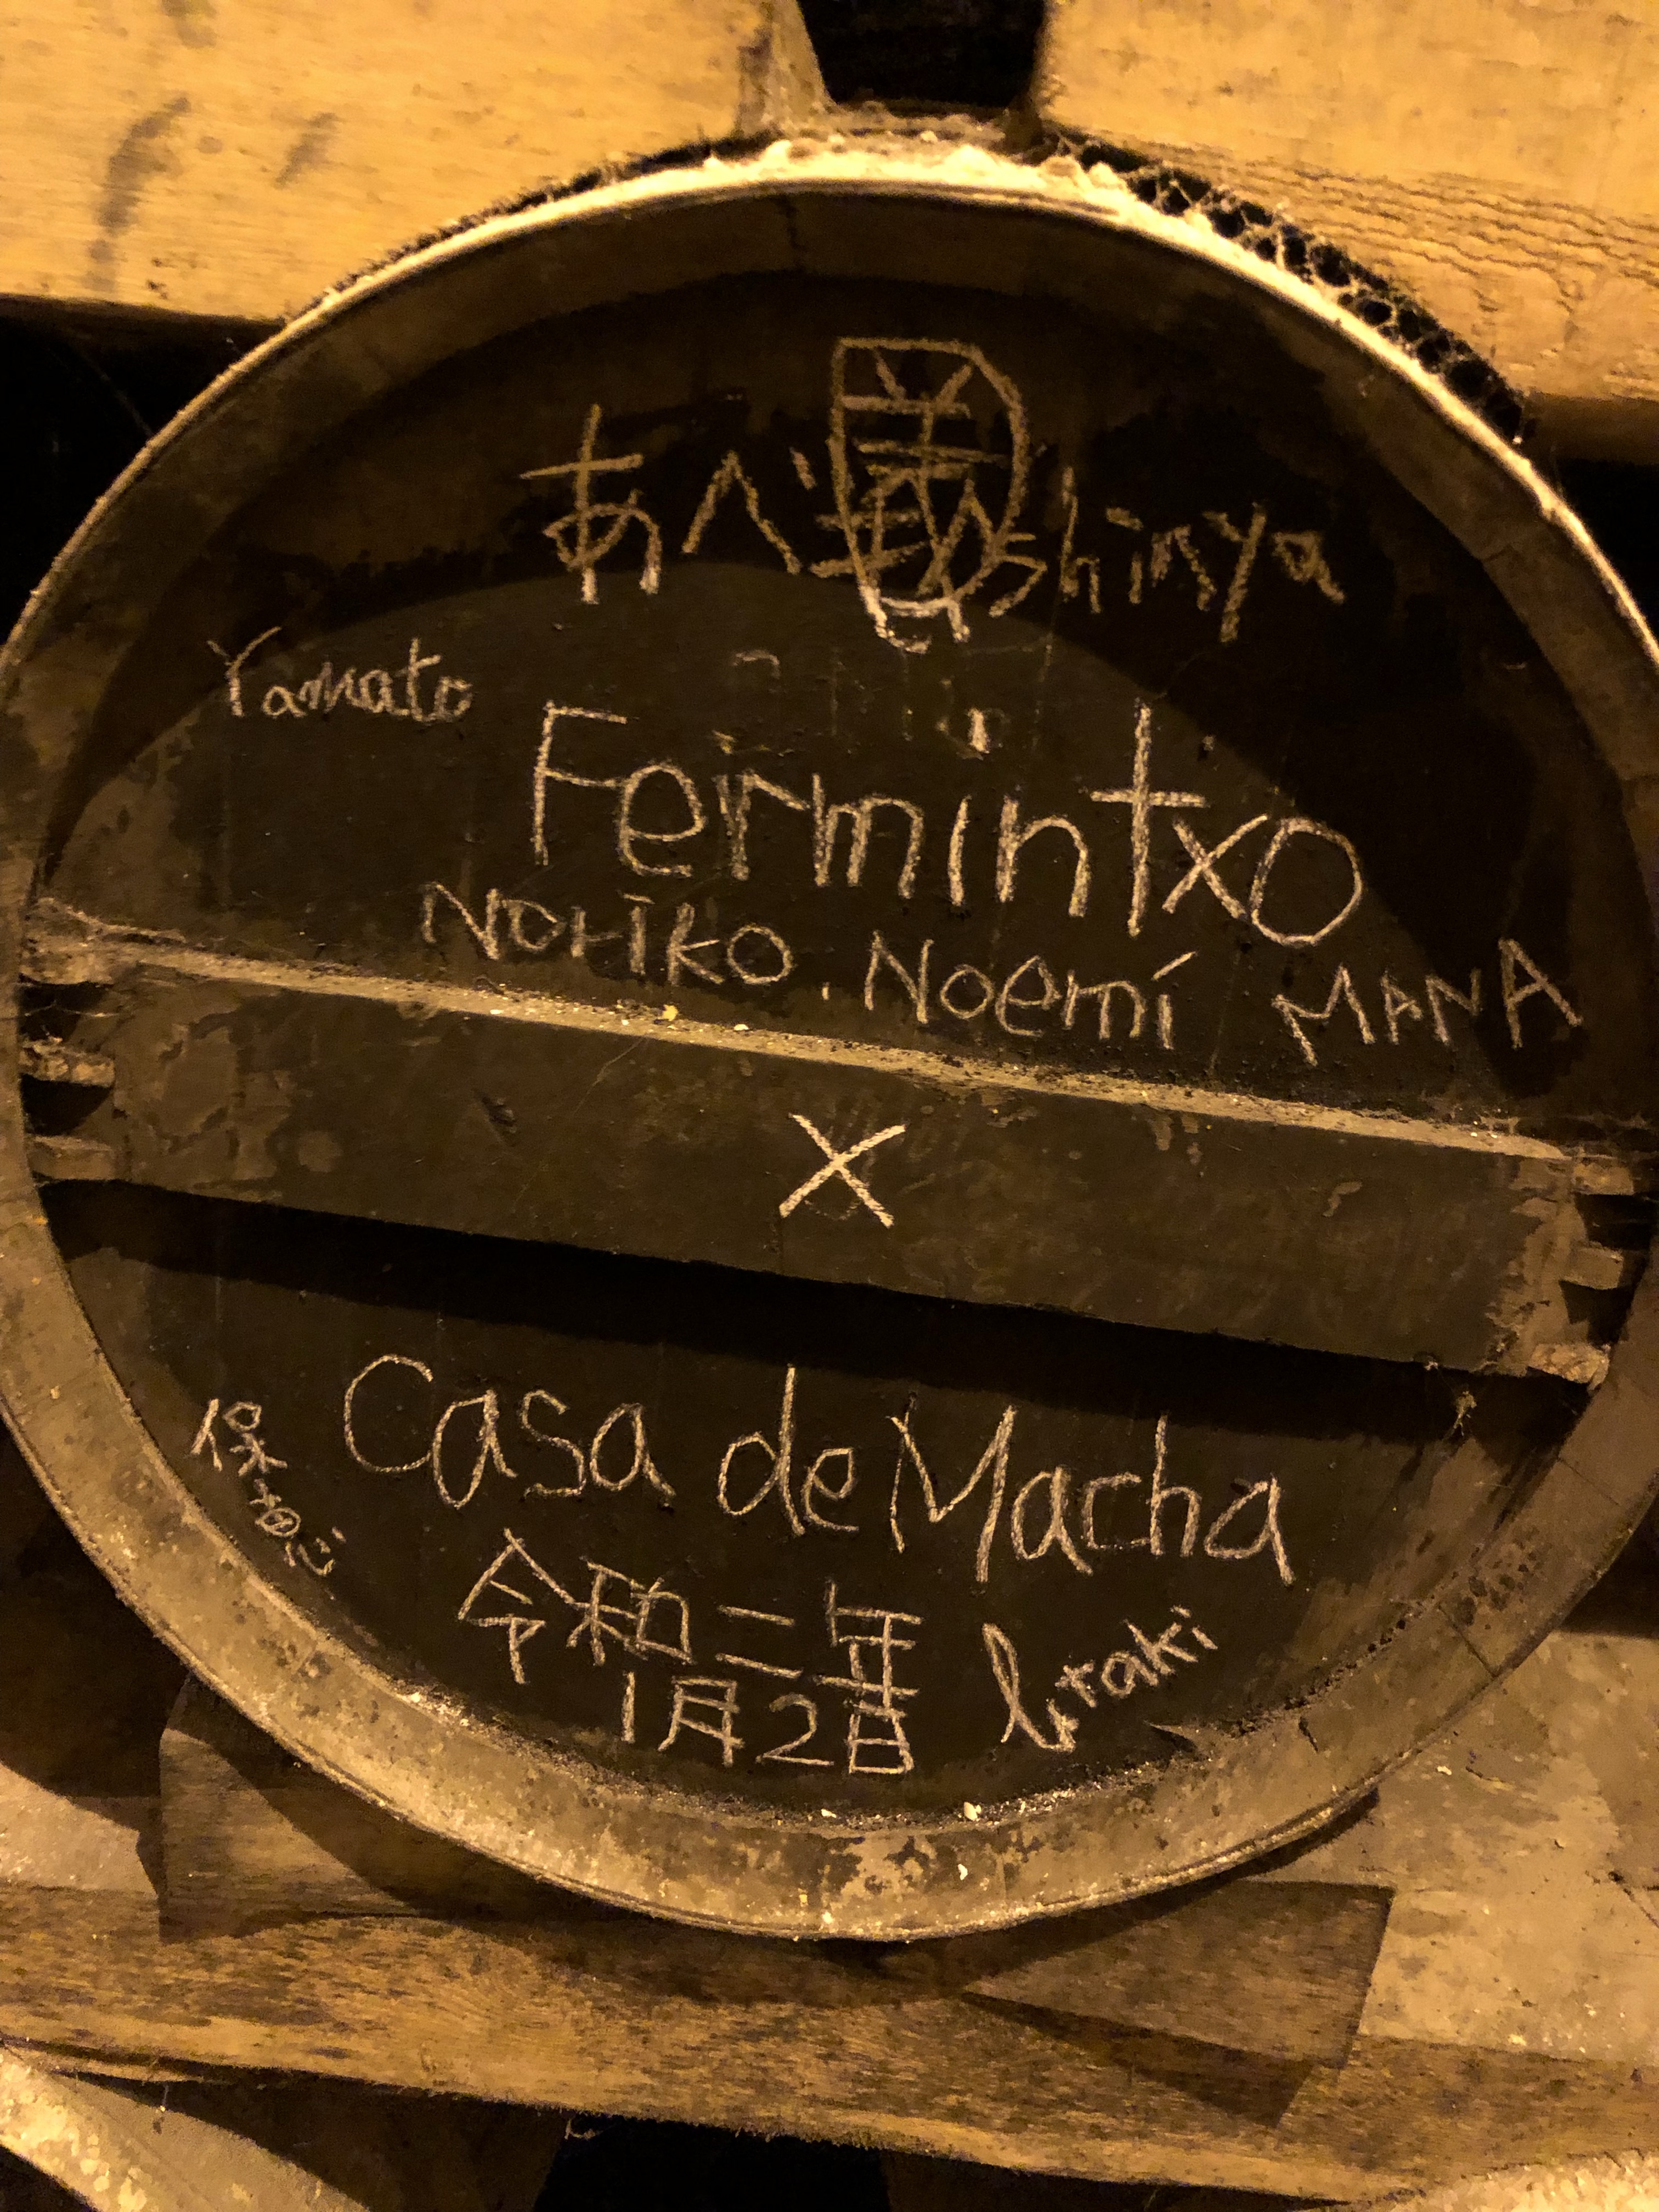 あべ Shinya
Yamato
Fermintxo
Noriko. Noemí MANA
X
Casa de Macha
令和二年
1月2日